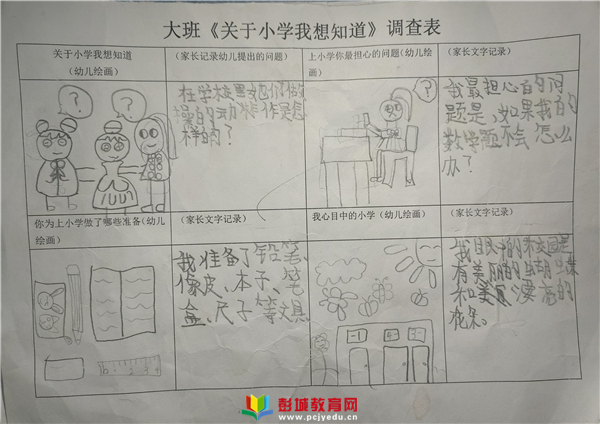 大班《关于小学我想知道》调查表
关于小学我想知道
（幼儿绘画）
(家长记录幼儿提出的问题)
在学校里她们做
操的动作是怎
样的？
上小学你最担心的问题(幼儿
绘画)
(家长文字记录)
我最担心的问
题是、如果我的
数学题不会怎么
办？
? ?
?
你为上小学做了哪些准备(幼儿
绘画)
(家长文字记录)
我准备了铅笔、
橡皮、本子、笔
盒、尺子等文具
我心目中的小学（幼儿绘画）
(家长文字记录)
我目中的校园是
有美丽的蝴蝶
和美漂亮的
花朵。
彭城教育网
www.pcjyedu.cn